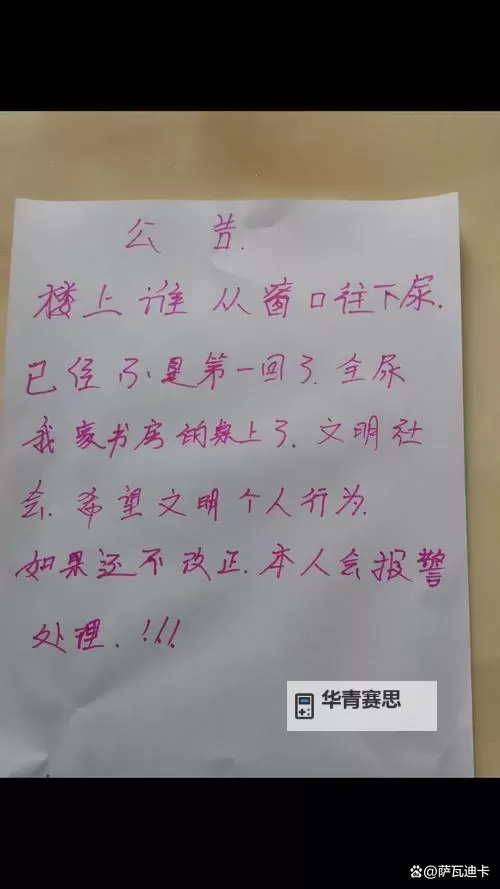 公告.
楼上谁从窗口往下尿.
已经不是第一回了.全尿
我家书房的桌上了.文明社
会.希望文明个人行为.
如果还不改正.本人会报警
处理.!!!
华青赛思
@萨瓦迪卡